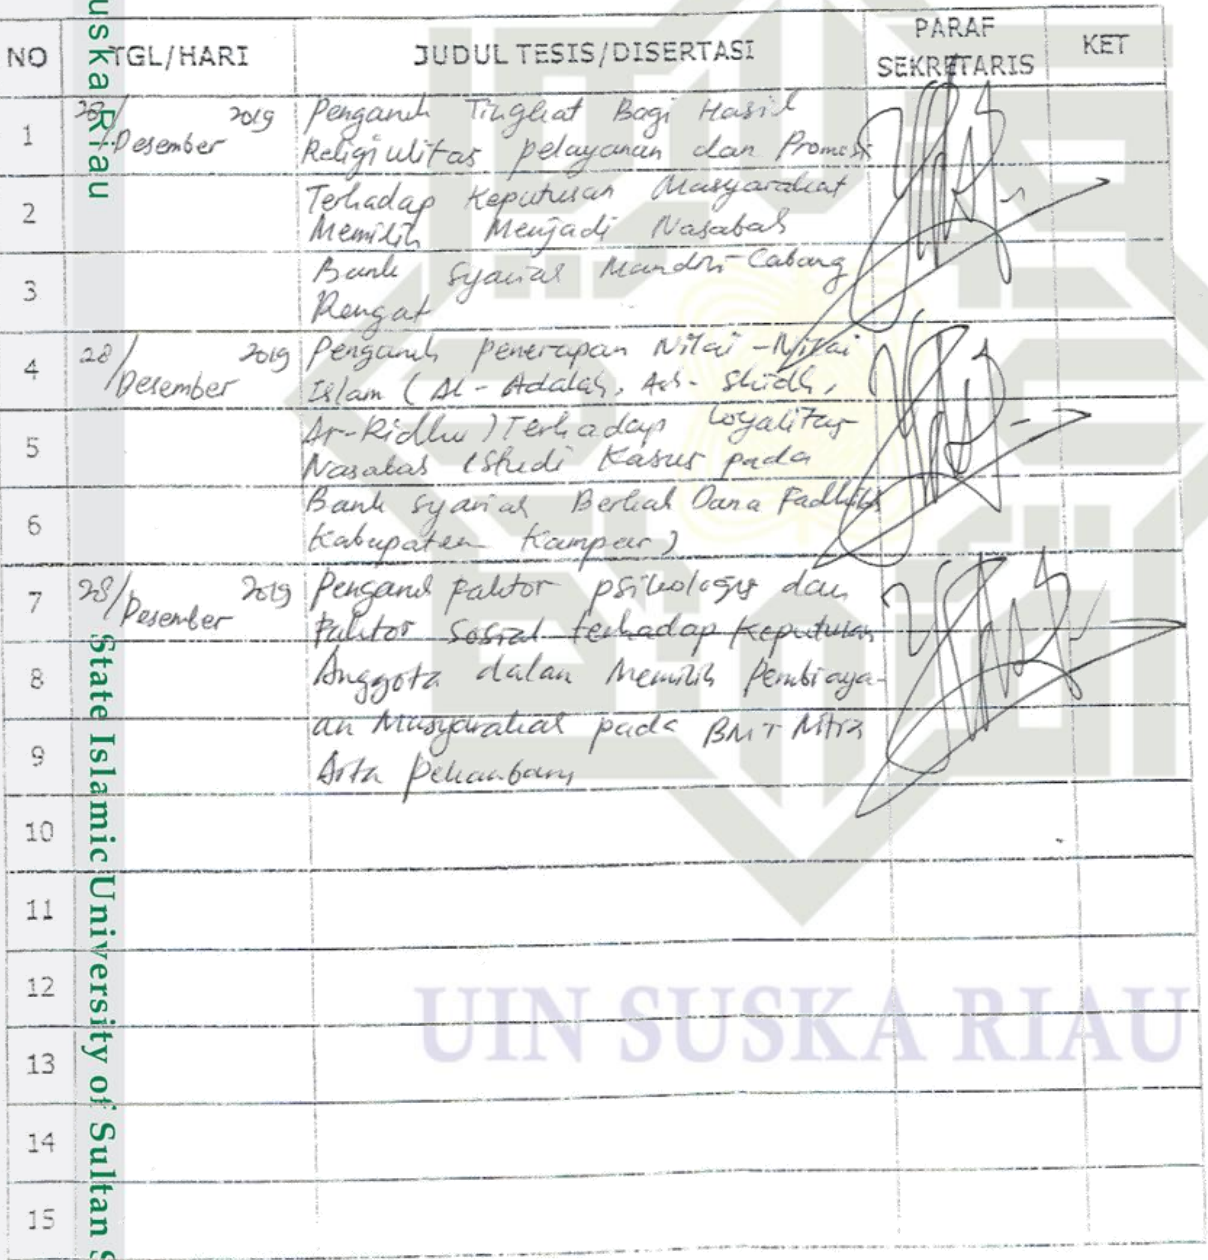 uska Riau
NO TGL/HARI JUDUL TESIS/DISERTASI PARAF SEKRETARIS KET
1 28/Desember 2019 Pengaruh Tingkat Bagi Hasil
Religiulitas pelayanan dan Promosi
2 Terhadap Keputusan Masyarakat
Memilih Menjadi Nasabah
3 Bank Syariah Mandiri Cabang
Rengat
4 28/Desember 2019 Pengaruh penerapan Nilai-Nilai
Islam (Al-Adalah, Ash-Shidh,
5 Ar-Ridha) Terhadap Loyalitas
Nasabah (Studi Kasus pada
6 Bank Syariah Berkah Dana Fadhlillah
Kabupaten Kampar)
7 28/Desember 2019 Pengaruh Faktor psikologis dan
Faktor Sosial terhadap Keputusan
8 Anggota dalam Memilih Pembiaya-
9 an Musyarakah pada BMT Mitra
Arta Pekanbaru
10
11
12
13
14
15
State Islamic University of Sultan S
UIN SUSKA RIAU